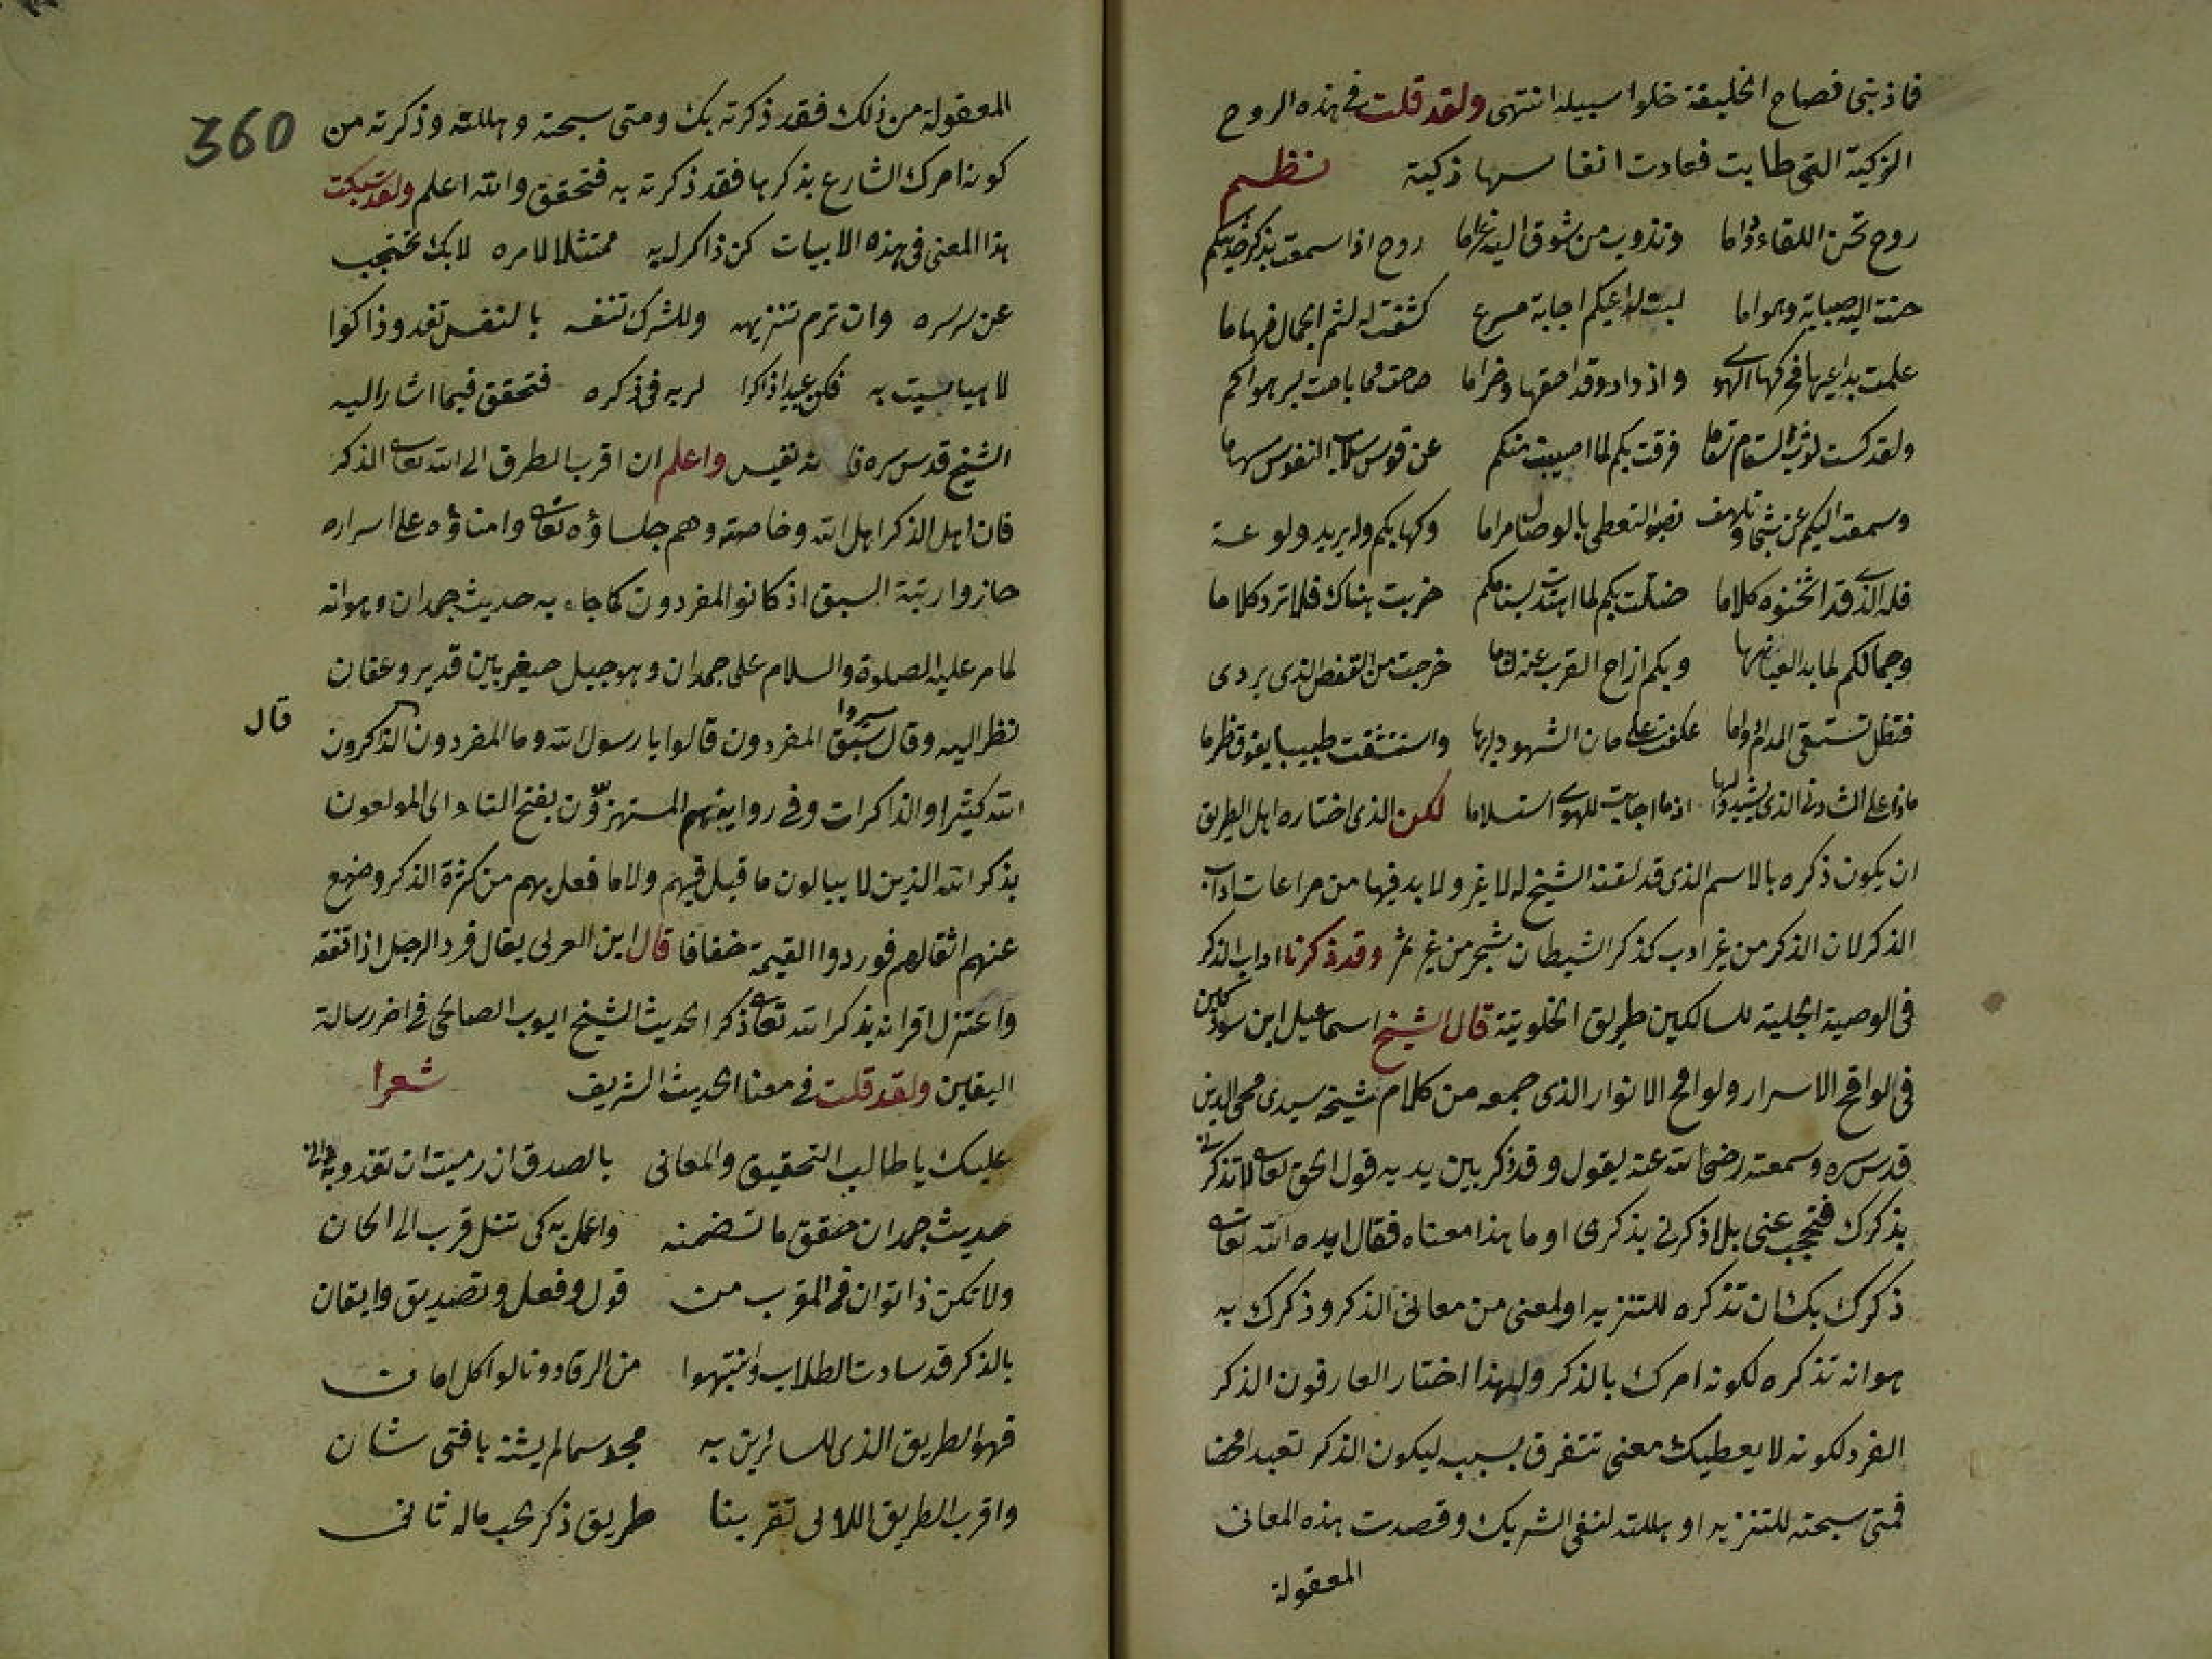 فما ذنبى فصاح الخليفة خلوا سبيله انتهى ولقد قلت فى هذه الروح
الزكية التى طابت فعادت انفاسها ذكية نظم
روح تحن اللقاء دواما وتذوب من شوق اليه غراما روح اذا سمعت بذكر حديثكم
حنت اليه صبابة وهواما لبت لداعيكم اجابة مسرع كشفت له لثم الجمال فهاما
علمت بداعيها فحركها الهوى واذداد وقد احقها وضراما صاحت فما باحت بسر هواكم
ولقد كست ثوب السقام فرقت بكم لما اصيبت منكم عن قوس سلاب النفوس سهاما
وسمعت اليكم عن شجا وتلهف نضوا لتعطى بالوصال مراما وكها بكم وله يريد ولوعة
فله الذى قد اثخنوه كلاما ضلت بكم لما اهتدت بسناكم ضربت هناك فلا ترد كلاما
وجمالكم لما بدا لعيانها وبكم ازاح القرب عنه لثاما خرجت من القفص الذى بردى
فتظل تستقى المدام دواما عكفت على حان الشهود واستنشقت طيبا يفوق
ماذا على الشادى الذى يشدولها اذما اجابت للهوى استسلاما لكن الذى اختاره اهل الطريق
ان يكون ذكره بالاسم الذى قد لقنه الشيخ له لا غير ولا بد فيها من مراعات اداب
الذكر لان الذكر من غير ادب كذكر الشيطان شجر من غير ثمر وقد ذكرنا اداب الذكر
فى الوصية الجلية للسالكين طريق الخلوتية قال الشيخ اسماعيل ابن سودكين
فى لواقح الاسرار ولوامح الانوار الذى جمعه من كلام شيخه سيدى محى الدين
قدس سره وسمعته رضى الله عنه يقول وقد ذكر بين يديه قول الحق تعالى لا تذكرنى
بذكرك فتحجب عنى بل اذكرنى بذكرى او ما هذا معناه فقال ايده الله تعالى
ذكرك بك ان تذكره للتنزيه او لمعنى من معانى الذكر وذكرك به
هو انه تذكره لكونه امرك بالذكر ولهذا اختار العارفون الذكر
الفرد لكونه لا يعطيك معنى تتفرق بسببه ليكون الذكر تعبدا محضا
فمتى سبحته للتنزيه او هللته لنفى الشريك وقصدت هذه المعانى
المعقولة
360
المعقولة من ذلك فقد ذكرته بك ومتى سبحته وهللته وذكرته من
كونه امرك الشارع بذكر ها فقد ذكرته به فتحقق والله اعلم ولقد سبكت
هذا المعنى فى هذه الابيات كن ذاكرا به ممتثلا لامره لا بك تحتجب
عن سره وان ترم تنزيهه وللشرك تنفه بالنفس تغدو ذاكرا
لاهيا نسيت به فكن عبدا ذاكرا لربه فى ذكره فتحقق فيما اشار اليه
الشيخ قدس سره فانه نفيس واعلم ان اقرب الطرق الى الله تعالى الذكر
فان اهل الذكر اهل الله وخاصته وهم جلساؤه تعالى وامناؤه على اسراره
حازوا رتبة السبق اذ كانوا المفردون كما جاء به حديث جمدان وهو انه
لما مر عليه الصلوة والسلام على جمدان وهو جبيل صغير بين قدير وعقان
نظر اليه وقال سيروا سبق المفردون قالوا يا رسول الله وما المفردون قال الذاكرون
الله كثيرا والذاكرات وفى رواية هم المستهزؤن بفتح التاء اى المولعون
بذكر الله الذين لا يبالون ما قيل فيهم ولا ما فعل بهم من كثرة الذكر وضع
عنهم اثقالهم فوردوا القيمة خفافا قال ابن العربى يقال فرد الرجل اذا تفقه
واعتزل اقرانه بذكر الله تعالى ذكر الحديث الشيخ ايوب الصالحى فى اخر رسالة
اليقين ولقد قلت فى معنا الحديث الشريف شعرا
عليك يا طالب التحقيق والمعانى بالصدق ان رميت ان تغدو به
حديث جمدان حقق ما تضمنه واعمل به كى تنل قرب الى الحان
ولا تكن ذا توان فى المقرب من قول وفعل وتصديق وايقان
بالذكر قد سادت الطلاب وانتبهوا من الرقاد ونالوا كل امان
فهو الطريق الذى للسائرين به مجد سما لم يشنه يا فتى شان
واقرب الطريق اللاتى تقربنا طريق ذكر لحب ما له ثانى